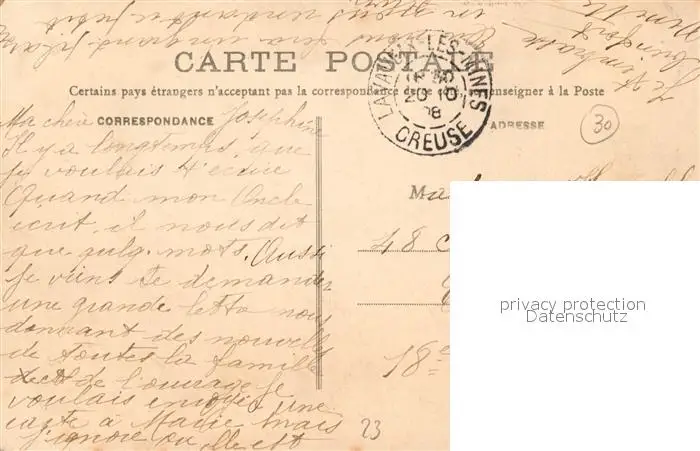 CARTE POSTALE
Certains pays étrangers n'acceptent pas la correspondance de se renseigner à la Poste
CORRESPONDANCE
ADRESSE
LAVAVEIX-LES-MINES
20 10
08
CREUSE
30
Ma chère Joséphine
Il y a longtemps que
je voulais t'écrire
Quand mon Oncle
écrit, il nous dit
que quelq. mots. Aussi
je viens te demander
une grande lettre nous
donnant des nouvelles
de toutes la famille
et de l'ouvrage je
voulais envoyer une
carte à Marie mais
j'ignore ou elle est
Je t'embrasse
48
18e
23
privacy protection
Datenschutz